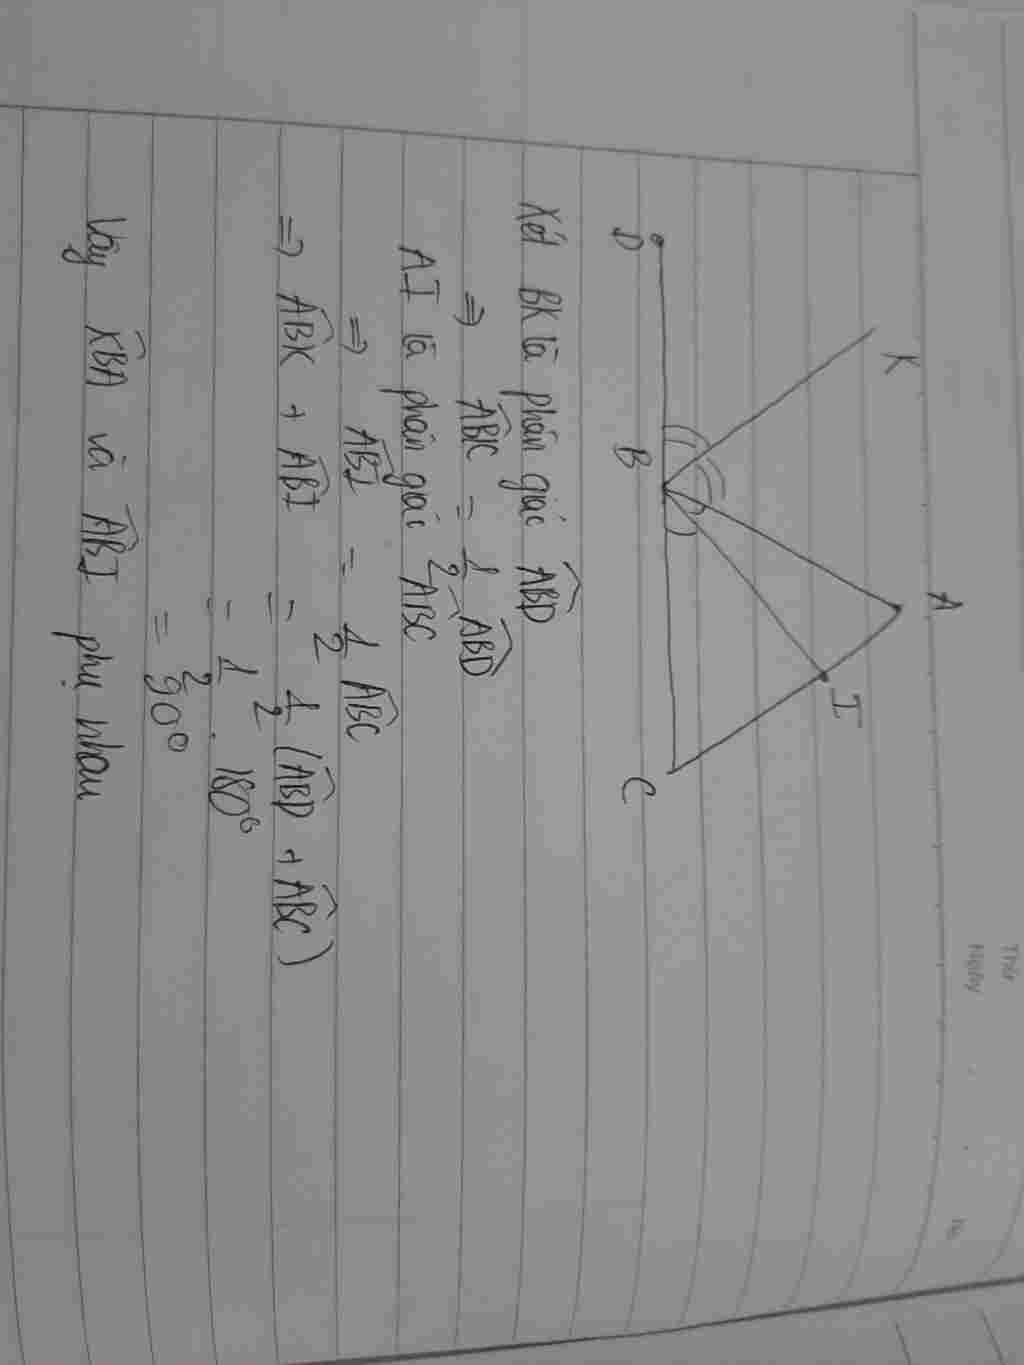 Thứ
Ngày
K
A
I
D
B
C
Xét BK là phân giác ABD
⇒ ABK = 1/2 ABD
AI là phân giác ABC
⇒ ABI = 1/2 ABC
⇒ ABK + ABI = 1/2 (ABD + ABC)
= 1/2 . 180°
= 90°
Vậy KBA và ABI phụ nhau